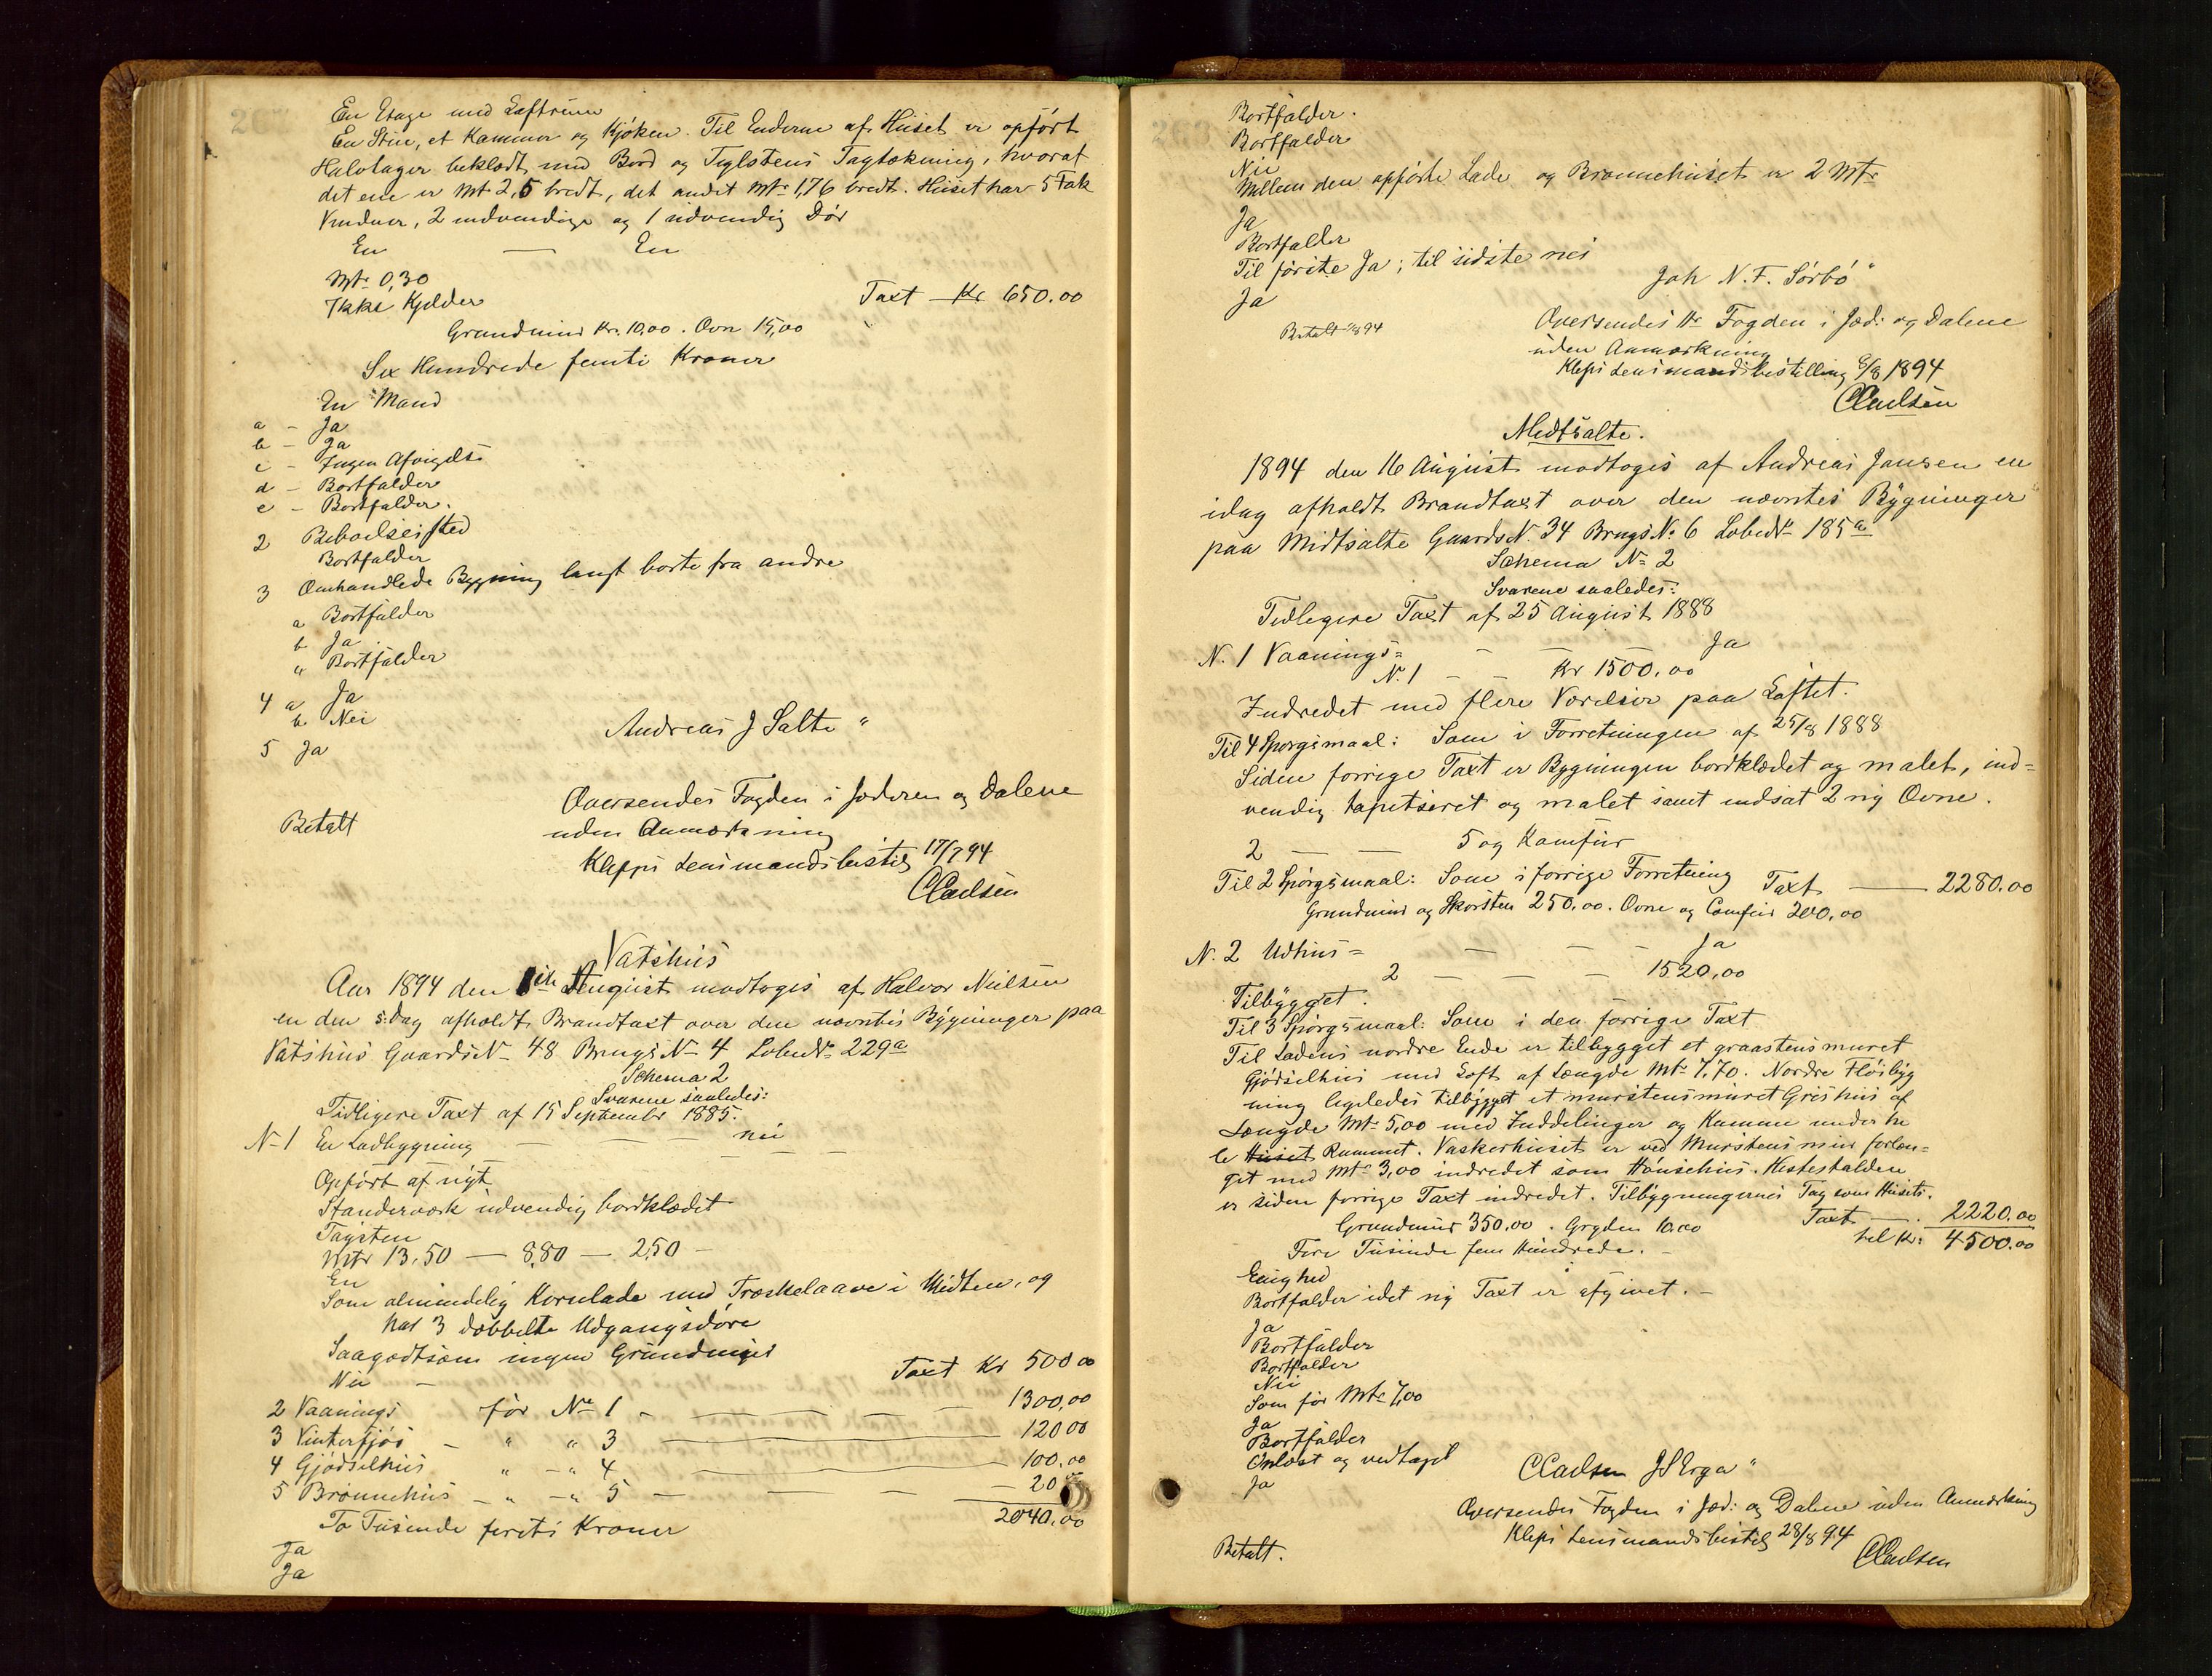 En Etage med Loftrum
En Stue, et Kammer og Kjøken. Til Enderne af Huset er opført
Halvtager beklædt med Bord og Teglstens Tagtækning, hvoraf
det ene er Mtr 2,5 bredt, det andet Mtr 1,76 bredt. Huset har 5 Fak
Vinduer, 2 indvendige og 1 udvendig Dør
En — En
Mtr 0,30
Ikke Kjelder
Taxt — Kr 650.00
Grundmur Kr. 10,00. Ovn 15,00
Sex Hundrede femti Kroner
En Mand
a - Ja
b - Ja
c - Ingen Afvigelse
d - Bortfalder
e - Bortfalder.
2 Beboelsessted
Bortfalder
3 Omhandlede Bygning langt borte fra andre
a Bortfalder
b Ja
" Bortfalder
4 a Ja
b Nei
5 Ja
Andreas J Salte "
Oversendes Fogden i Jæderen og Dalene
uden Anmærkning
Betalt
Klepps Lensmandsbestilg 17/7 94
CCarlsen
Vatshus
Aar 1894 den August modtoges af Halvor Nielsen
en den s. Dag afholdt Brandtaxt over den nævntes Bygninger paa
Vatshus Gaards No 48 Brugs No 4 Løbe No 229a
Schema 2
Svarene saaledes:
Tidligere Taxt af 15 September 1885.
No 1 En Ladbygning — — — nei — —
Opført af nyt
Standerværk udvendig bordklædet
Tagsten
Mtr 13,50 — 8,80 — 2,50 -
En
Som almindelig Kornlade med Træskelaave i Midten, og
har 3 dobbelte Udgangsdøre
Saagodtsom ingen Grundmur
Nei -
Taxt Kr 500 00
2 Vaanings før No 1 - — — — — 1300,00
3 Vinterfjøs - " " 3 — 120 00
4 Gjødselhus " - " 4 — 100.00
5 Brønnehus - " - " 5 — — — — 20
To Tusinde førti Kroner 2040.00
Ja
Ja
Bortfalder.
Bortfalder
Nei
Mellem den opførte Lade og Brønnehuset er 2 Mtr
Ja
Bortfalder
Til første Ja; til sidste nei
Ja
Joh N. F. Sørbø "
Betalt 94
Oversendes Hr Fogden i Jæd: og Dalene
uden Anmærkning
Kleps Lensmandsbestilling 6/8 1894
CCarlsen
Midtsalte.
1894 den 16 August modtoges af Andreas Jansen en
idag afholdt Brandtaxt over den nævntes Bygninger
paa Midtsalte Gaards No. 34 Brugs No 6 Løbe No 185a
Schema No 2
Svarene saaledes:
Tidligere Taxt af 25 August 1888
N. 1 Vaanings= - — — Ja
N. 1 - - Kr 1500.00
Indredet med flere Værelser paa Loftet.
Til 4 Spørgsmaal: Som i Forretningen af 25/8 1888
Siden forrige Taxt er Bygningen bordklædet og malet, ind=
vendig tapetseret og malet samt indsat 2 ny Ovne.
2 — — 5 og Komfur
Til 2 Spørgsmaal: Som i forrige Forretning Taxt — 2280.00
Grundmur og Skorsten 250.00. Ovne og Comfur 200,00
N. 2 Udhus= — - - Ja
2 — — — 1520,00
Tilbygget.
Til 3 Spørgsmaal: Som i den forrige Taxt
Til Ladens nordre Ende er tilbygget et graastensmuret
Gjødselhus med Loft af Længde Mtr 7,70. Nordre Fløibyg
ning ligeledes tilbygget et murstensmuret Grishus af
Længde Mtr 5,00 med Inddelinger og Kumme under he
le Huset Rummet. Vaskerhuset er ved Murstens mur forlæn=
get med Mtr 3,00 indredet som Hønsehus. Hestestalden
er siden forrige Taxt indredet. Tilbygningernes Tag som Husets.
Grundmur 350,00. Gryden 10.00 Taxt — . 2220.00
Fire Tusinde fem Hundrede. - tel Kr: 4500.00
Enighed
Bortfalder idet ny Taxt er afgivet. -
Ja
Bortfalder
Bortfalder
Nei
Som før Mtr 7,00
Ja
Bortfalder
Oplæst og vedtaget
Ja
CCarlsen J S Erga "
Oversendes Fogden i Jæd: og Dalene uden Anmærkning
Kleps Lensmandsbestilg 28/8 94
Betalt.
CCarlsen